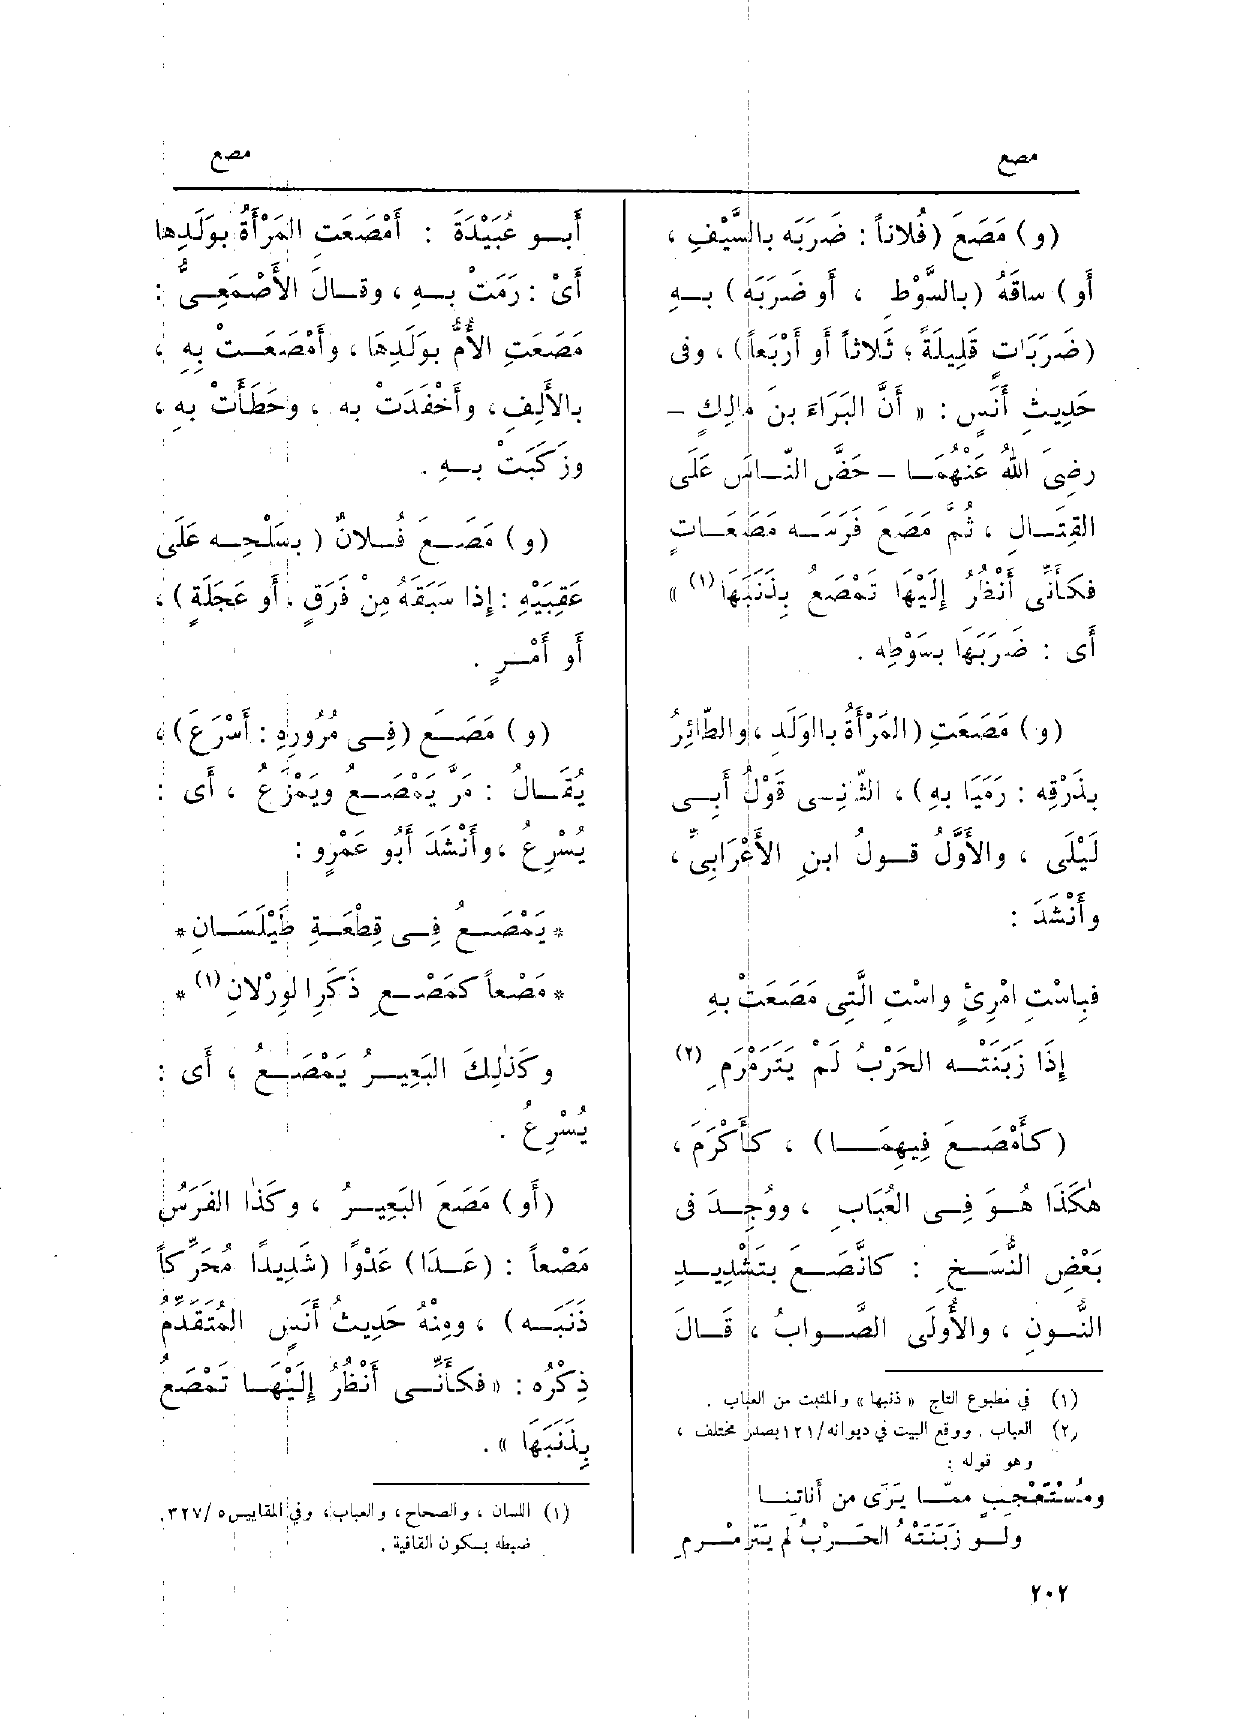 مصع
مصع
(و) مَصَعَ (فُلاناً : ضَرَبَه بالسَّيْفِ ،
أو) ساقَهُ (بالسَّوْطِ ، أو ضَرَبَه) بـه
(ضَرَبَاتٍ قَلِيلَةً ، ثَلاثاً أو أَرْبَعاً) ، وفى
حَدِيثِ أَنَسٍ : « أَنَّ البَرَاءَ بن مالِكٍ –
رضِىَ اللهُ عَنْهُمَـا – حَضَّ النَّـاسَ عَلَى
القِتَـالِ ، ثُمَّ مَصَعَ فَرَسَـه مَصَعَـاتٍ
فكَأَنِّى أَنْظُرُ إِلَيْهَا تَمْصَعُ بِذَنَبِهَا(١) »
أى : ضَرَبَهَا بسَوْطِه .
(و) مَصَعَتِ (المَرْأَةُ بالوَلَدِ ، والطّائِرُ
بذَرْقِه : رَمَيَا بهِ) ، الثّانِـى قَوْلُ أَبـى
لَيْلَى ، والأَوَّلُ قـولُ ابنِ الأَعْرَابِىِّ ،
وأَنْشَدَ :
فبِاسْتِ امْرِئٍ واسْتِ الَّتِى مَصَعَتْ بهِ
إِذَا زَبَنَتْـه الحَرْبُ لَمْ يَتَرَمْرَمِ (٢)
(كأَمْصَـعَ فِيهِمَـــا) ، كأَكْرَمَ ،
هٰكَذَا هُـوَ فِـى العُبَابِ ، ووُجِـدَ فى
بَعْضِ النُّسَـخِ : كانَّصَـعَ بتَشْدِيـدِ
النُّـونِ ، والأُولَى الصَّـوابُ ، قَـالَ
(١) في مطبوع التاج « ذنبها » والمثبت من العباب .
(٢) العباب . ووقع البيت في ديوانه/١٢١ بصدر مختلف ،
وهو قوله :
ومُسْتَعْجِبٍ ممَّـا يَرَى من أَناتِنَـا
ولـو زَبَنَتْهُ الحَـرْبُ لم يَتَرَمْـرمِ
٢٠٢
أَبـو عُبَيْدَةَ : أَمْصَعَت المَرْأَةُ بوَلَدِها
أَىْ : رَمَتْ بـهِ ، وقـالَ الأَصْمَعِـىُّ :
مَصَعَتِ الأُمُّ بوَلَدِها ، وأَمْصَعَـتْ بِهِ ،
بالأَلِفِ ، وأَخْفَدَتْ به ، وحَطَأَتْ به ،
وزَكَبَتْ بـهِ .
(و) مَصَـعَ فُـلانٌ (بسَلْحِـه عَلَى
عَقِبَيْهِ : إذا سَبَقَهُ مِنْ فَرَقٍ ، أو عَجَلَةٍ) ،
أو أَمْـرٍ .
(و) مَصَـعَ (فِـى مُرُورِه : أَسْرَعَ) ،
يُقَـالُ : مَرَّ يَمْصَـعُ ويَمْزَعُ ، أى :
يُسْرِعُ ، وأَنْشَدَ أَبُو عَمْرٍو :
* يَمْصَـعُ فِـى قِطْعَـةِ طَيْلَسَـانِ *
* مَصْعـاً كمَصْـعِ ذَكَرِ الوِرْلانِ(١) *
وكَذٰلِكَ البَعِيـرُ يَمْصَـعُ ، أى :
يُسْرِعُ .
(أو) مَصَعَ البَعِيـرُ ، وكَذٰا الفَرَسُ
مَصْعاً : (عَـدَا) عَدْوًا (شَدِيدًا مُحَرِّكاً
ذَنَبَـه) ، ومِنْهُ حَدِيثُ أَنَسٍ المُتَقَدِّمُ
ذِكْرُه : « فكَأَنِّـى أَنْظُرُ إِلَيْهَـا تَمْصَعُ
بِذَنَبِهَا » .
(١) اللسان ، والصحاح ، والعباب ، وفي المقاييس ٥ /٣٢٧ .
ضبطه بسكون القافية .